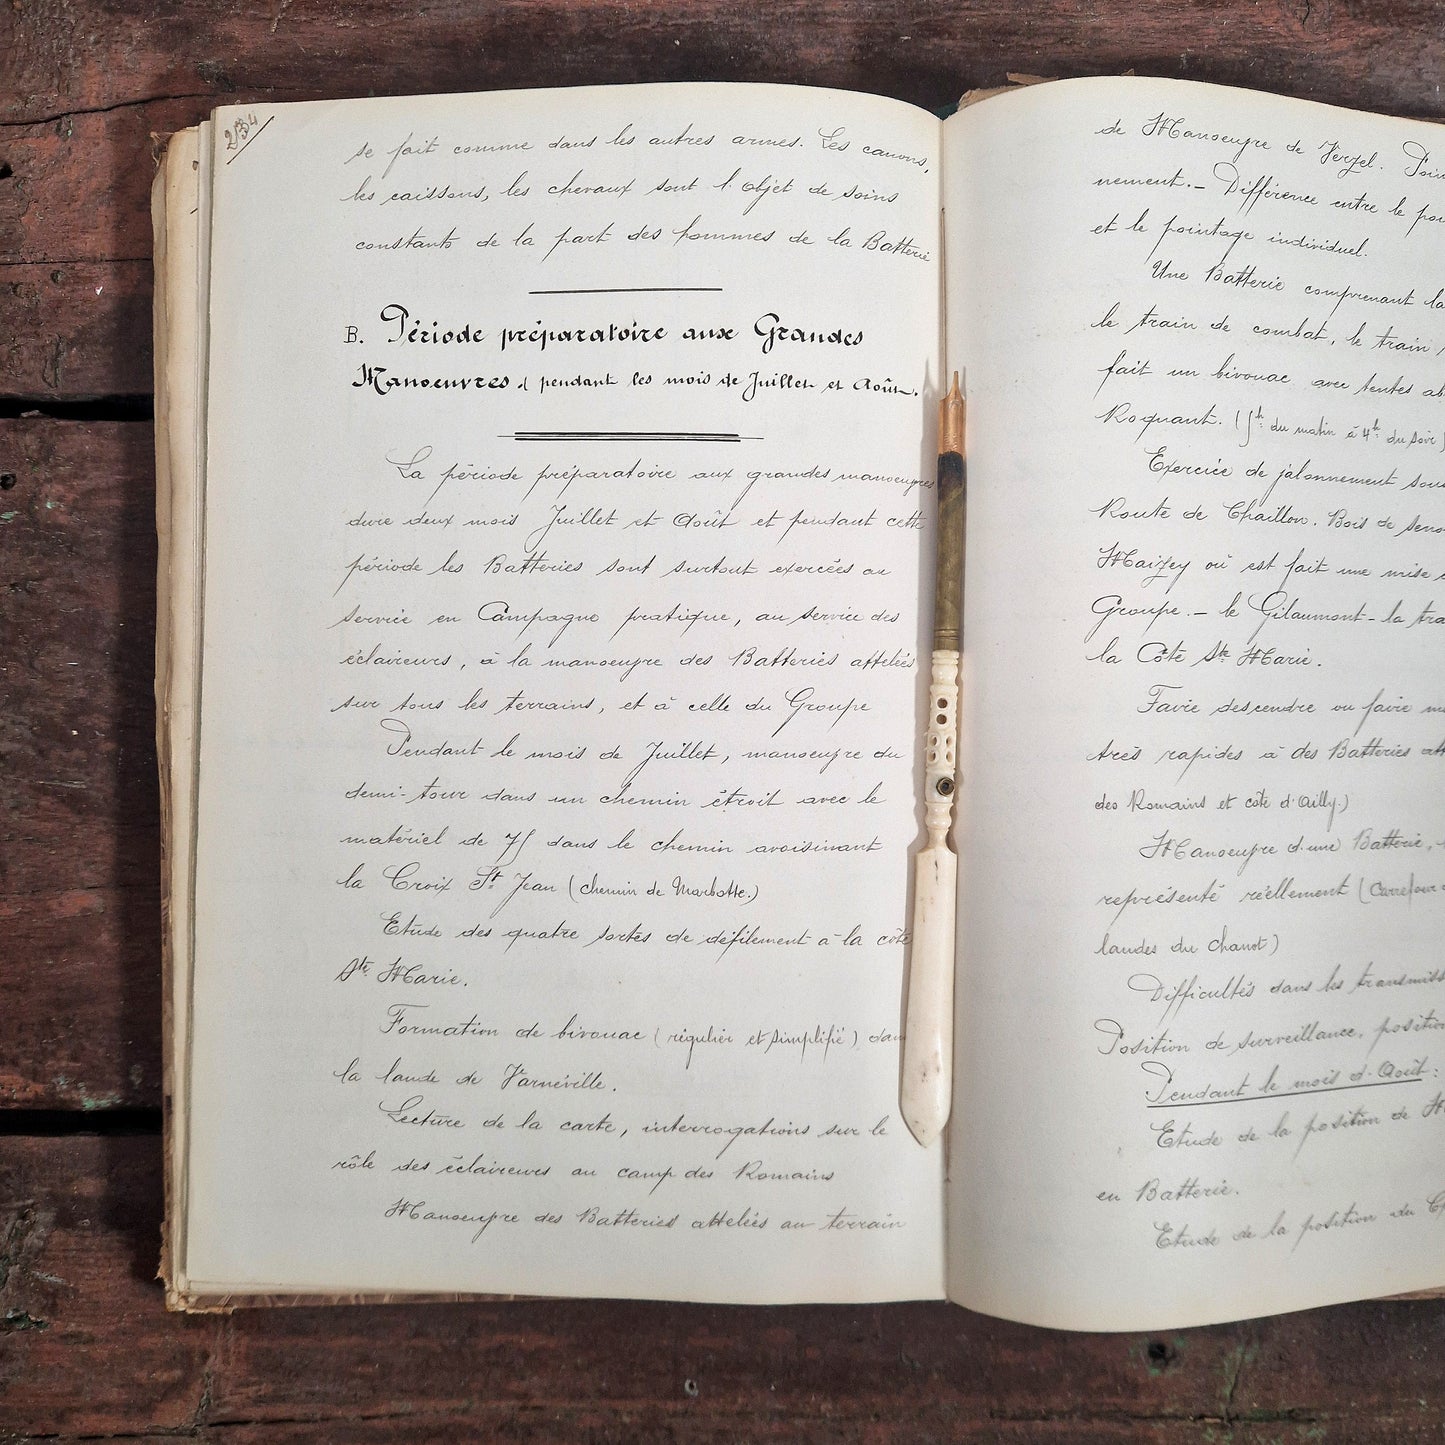 234
se fait comme dans les autres armes. Les canons,
les caissons, les chevaux sont l'objet de soins
constants de la part des hommes de la Batterie
B. Période préparatoire aux Grandes
Manoeuvres (pendant les mois de Juillet et Août.
La période préparatoire aux grandes manoeuvres
dure deux mois Juillet et Août et pendant cette
période les Batteries sont surtout exercées au
service en Campagne pratique, au service des
éclaireurs, à la manoeuvre des Batteries attelées
sur tous les terrains, et à celle du Groupe
Pendant le mois de Juillet, manoeuvre du
demi-tour dans un chemin étroit avec le
matériel de 75 dans le chemin avoisinant
la Croix St Jean (chemin de Marbotte.)
Etude des quatre sortes de défilement à la côte
Ste Marie.
Formation de bivouac (régulier et simplifié) dans
la lande de Varnéville.
Lecture de la carte, interrogations sur le
rôle des éclaireurs au camp des Romains
Manoeuvre des Batteries attelées au terrain
de Manoeuvre de Verzel.
nement. - Différence entre le
et le pointage individuel.
Une Batterie comprenant la
le train de combat, le train
fait un bivouac avec tentes
Roquant. (5h du matin à 4h du soir)
Exercice de jalonnement
Route de Chaillon. Bois de
Maizey où est fait une mise
Groupe. - le Gilaumont - la
la Côte Ste Marie.
Faire descendre ou faire
très rapides à des Batteries
des Romains et côte d'Ailly.)
Manoeuvre d'une Batterie,
représenté réellement (Carrefour
landes du chanot)
Difficultés dans les
Position de surveillance, position
Pendant le mois d'Août:
Etude de la position de
en Batterie.
Etude de la position du